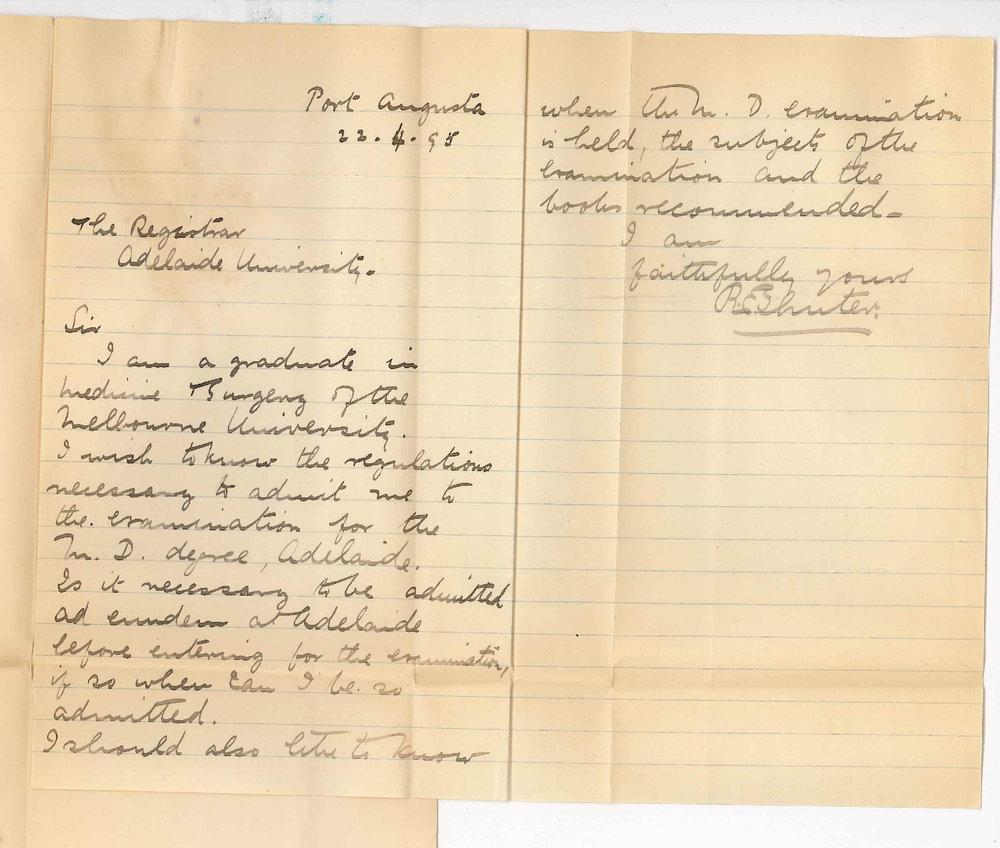 Port Augusta
22.4.95
The Registrar
Adelaide University.
Sir
I am a graduate in
medicine & Surgery of the
Melbourne University.
I wish to know the regulations
necessary to admit me to
the examination for the
M. D. degree, Adelaide.
Is it necessary to be admitted
ad eundem at Adelaide
before entering for the examination,
if so when can I be so
admitted.
I should also like to know
when the M. D. examination
is held, the subjects of the
examination and the
books recommended-
I am
faithfully yours
R.E. Shuter.